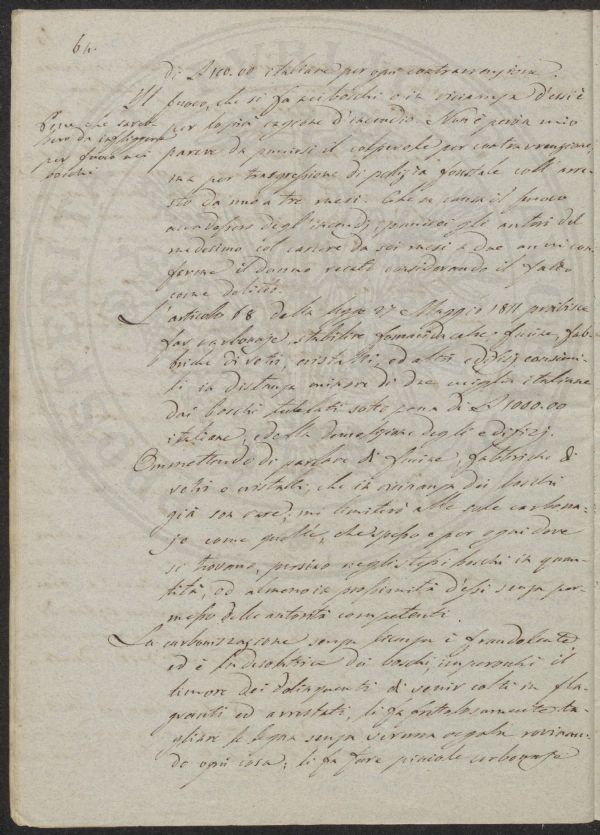 64.
di £ 100.00 italiane per ogni contravvenzione.
Il fuoco, che si fa nei boschi o in vicinanza d'essi è
Pena che sareb-
bero da infliggersi
per fuoco nei
boschi
per lo più cagione d'incendio. Non è perciò mio
parere da punirsi il colpevole per contravvenzione,
ma per trasgressione di polizia forestale coll' arre-
sto da uno a tre mesi. Che se causa il fuoco
accadessero degl' incendj, puniscei gli autori del
medesimo col carcere da sei mesi a due anni con-
forme il danno recato considerando il fatto
come delitto.
L'articolo 68 della legge 27 Maggio 1811 proibisce
far carbonaje stabilire fornaci da calce fucine, fab-
briche di vetri, cristalli, ed altri edifizj consimi-
li in distanza minore di due miglia italiane
dai boschi tutelati sotto pena di £ 1000.00
italiane, e della demolizione degli edifizj.
Ommettendo di parlare di fucine, fabbriche di
vetri e cristalli, che in vicinanza dei boschi
già son rare; mi limiterò alle sole carbona-
je come quelle, che spesso e per ogni dove
si trovano, persino negli stessi boschi in quan-
tità, od almeno in prossimità d'essi senza per-
messo delle autorità competenti.
La carbonizzazione senza licenza è fraudolente
ed è la desolatrice dei boschi, imperocchè il
timore dei delinquenti di venir colti in fla-
granti ed arrestati, li fa frettolosamente ta-
gliare le legna senza veruna regola rovinan-
do ogni cosa; li fa fare piccole carbonaje